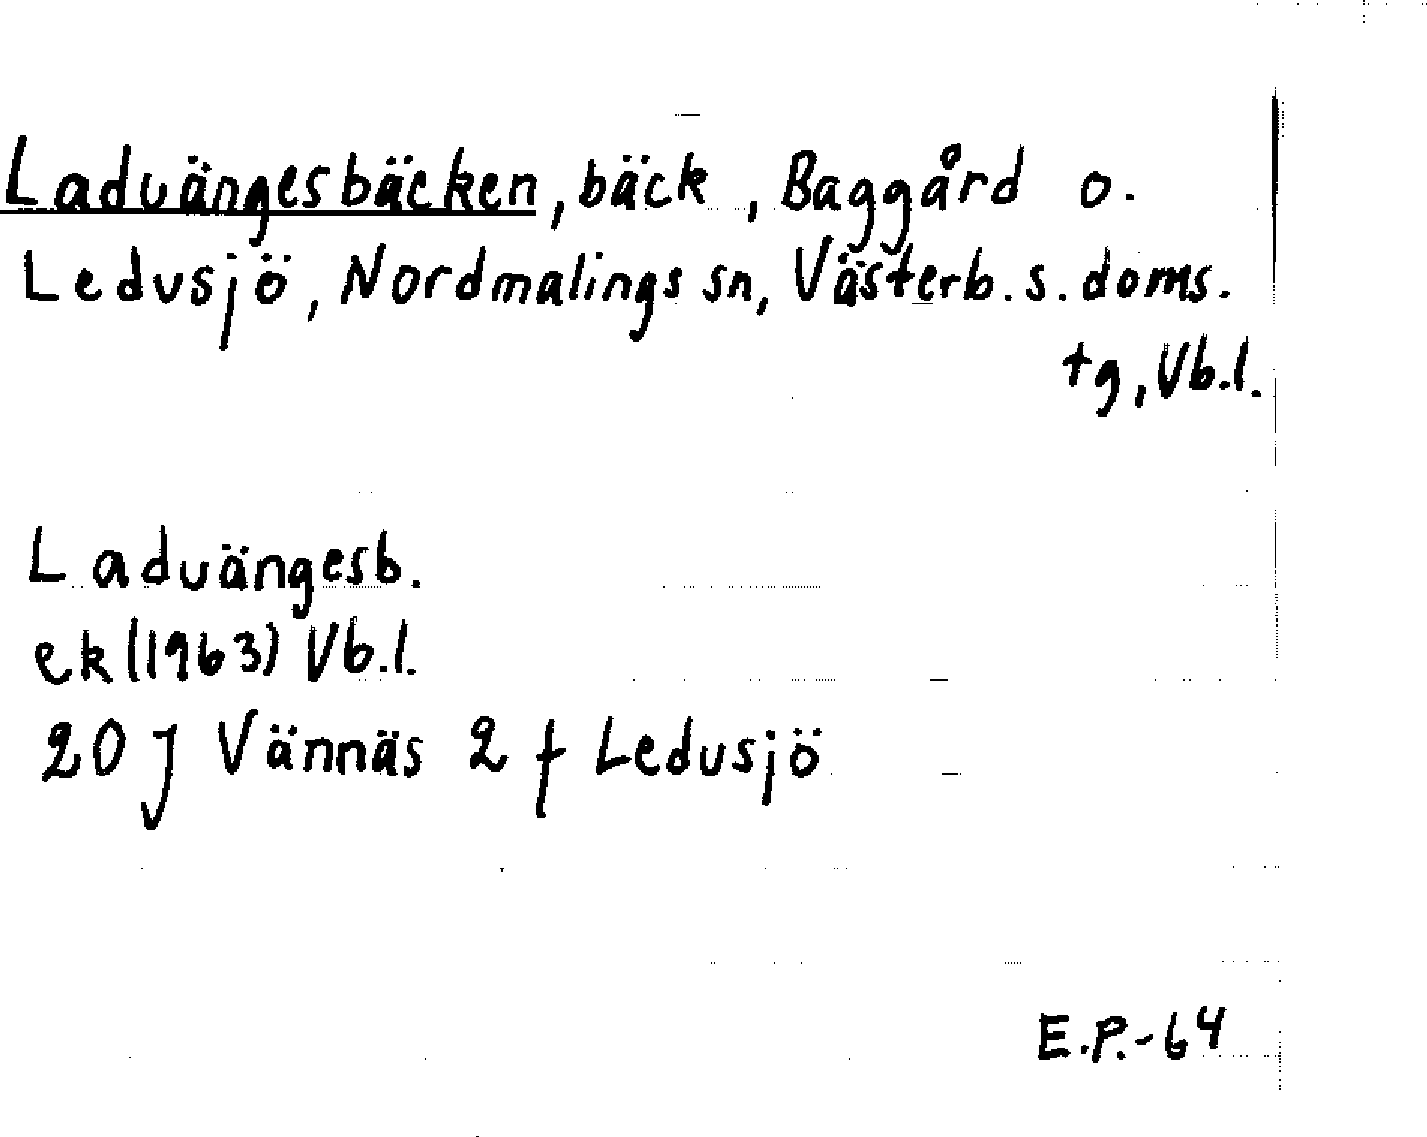 Laduängesbäcken, bäck, Baggård o.
Ledusjö, Nordmalings sn, Västerb. s. doms.
tg, Vb.l.
Laduängesb.
ek (1963) Vb.l.
20 J Vännäs 2 f Ledusjö
E.P.-64